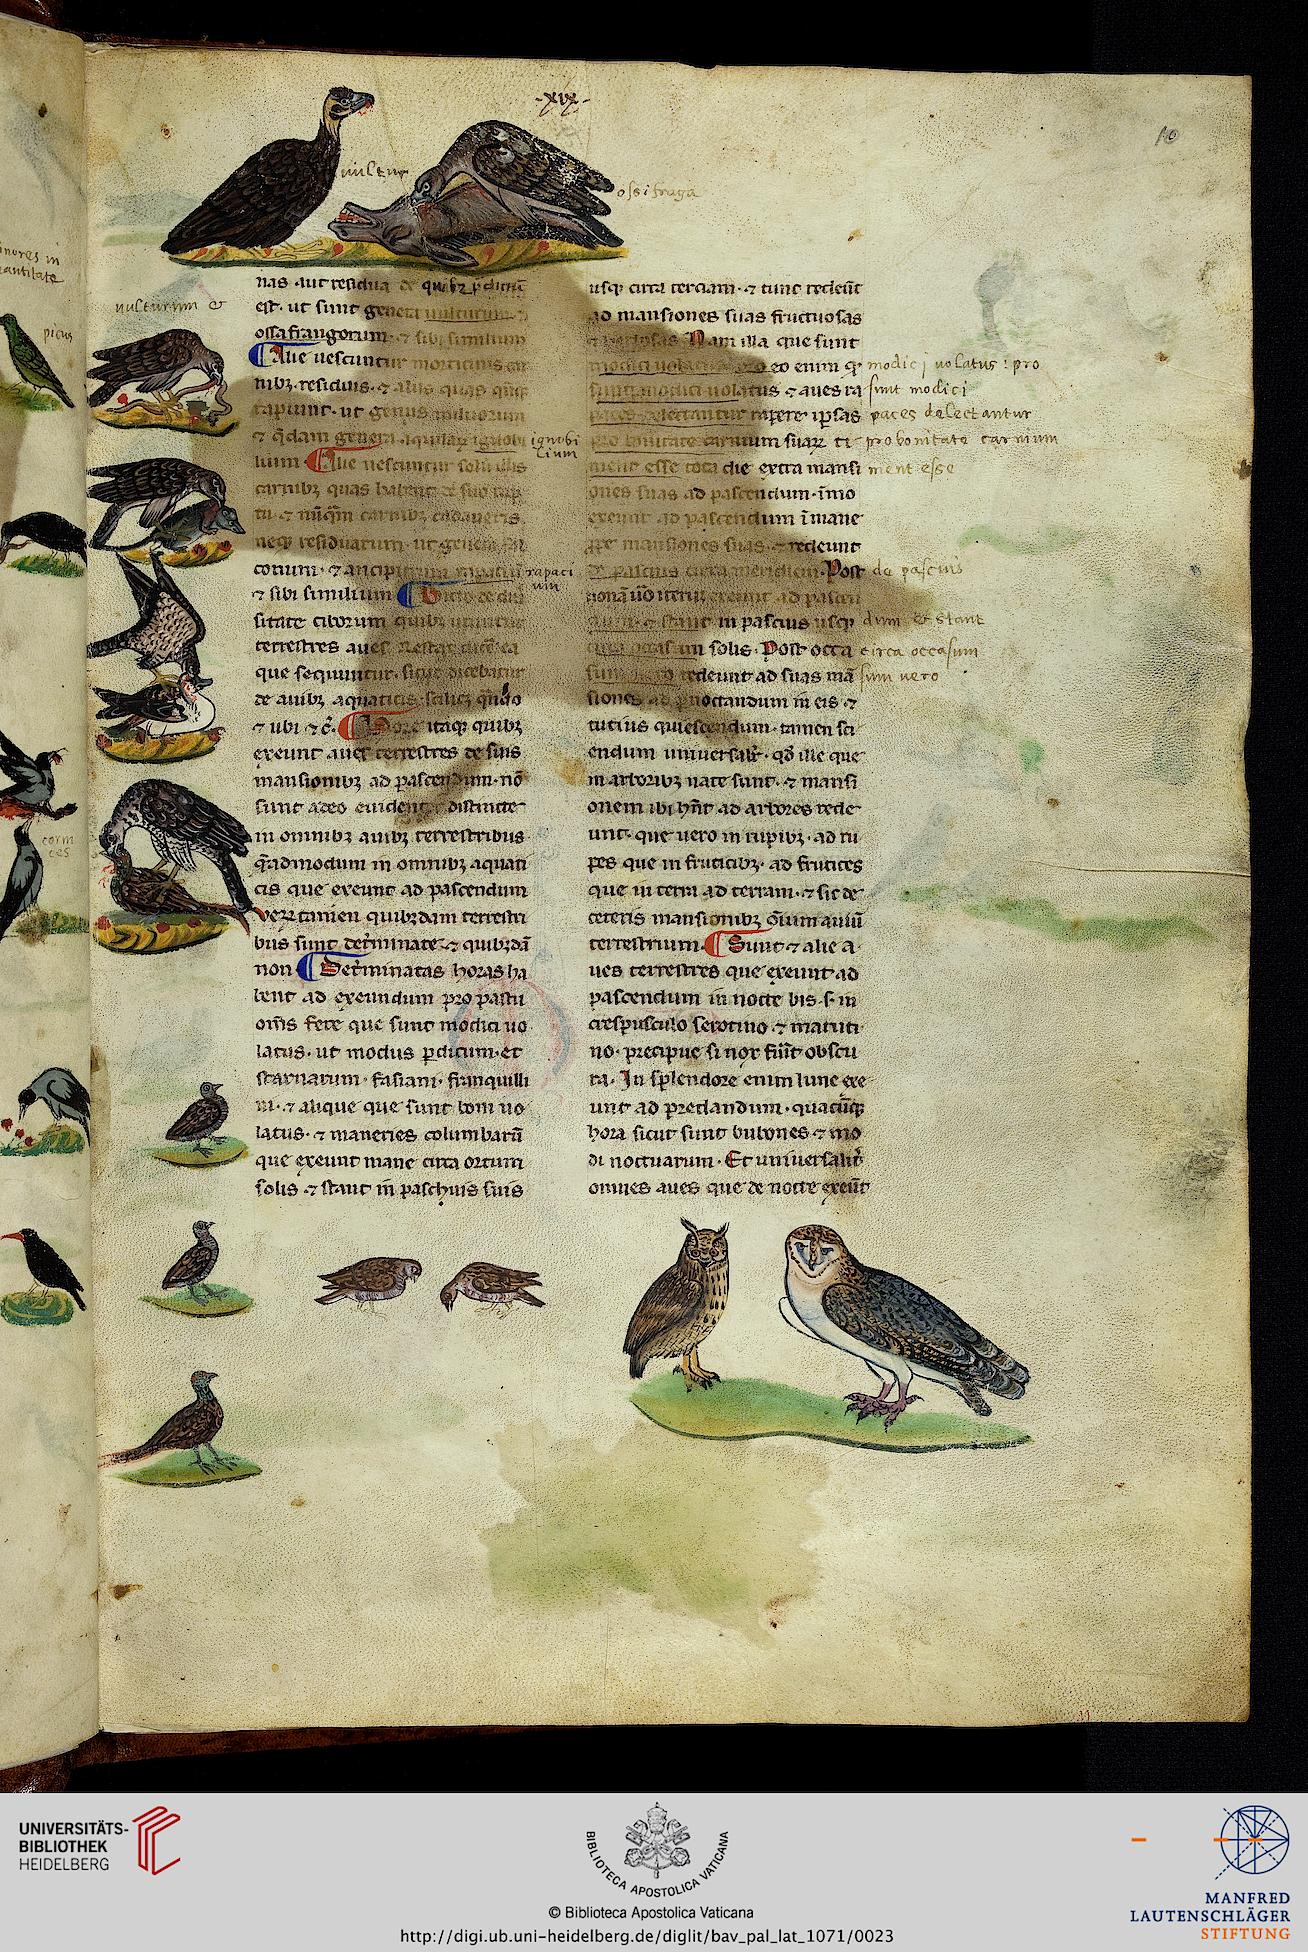 ·xix·
10
vultur
ossifraga
nores in
antitate
picus
corni
ces
vulturum &
nas aut residua de quibuʒ pdictū
est. ut sunt genera uulturum ⁊
ossafrangorum ⁊ sibi similium
Alie uescuntur morticinis
nibʒ residuis ⁊ aliis quas
rapiunt. ut genus miluorum
⁊ q̄dam genera aquilaꝝ ignobi
lium Alie uescuntur solū illis
carnibʒ quas habent de suo rap
tu ⁊ nūq̄m carnibʒ cadaueris
neqʒ residuarum ut genera fal
conum ⁊ ancipitrum rapaciū
⁊ sibi similium Dicto de diu
sitate ciborum quibʒ utuntur
terrestres aues
que sequuntur. sicut dicebatur
de auibʒ aquaticis scilicʒ qn̄do
⁊ ubi ⁊ c̄. Hore itaqʒ quibʒ
exeunt aues terrestres de suis
mansionibʒ ad pascendum. nō
sunt adeo euidenter distincte
in omnibʒ auibʒ terrestribus.
q̄admodum in omnibʒ aquati
cis que exeunt ad pascendum
veꝝ tamen quibʒdam terrestri
bus sunt det̄minate ⁊ quibʒdā
non Det̄minatas horas ha
bent ad exeundum pro pastu
om̄s fere que sunt modici uo
latus. ut modus pdicum. et
starnarum. fasiani. franquilli
ni. ⁊ alique que sunt boni uo
latus. ⁊ maneries columbarū
que exeunt mane circa ortum
solis ⁊ stant in paschuis suis
ignobi
lium
rapaci
um
usqʒ circa terciam. ⁊ tunc redeūt
ad mansiones suas fructuosas
⁊ Nam illa que sunt
modici uolatus eo enim qʒ
sunt modici uolatus ⁊ aues ra
paces delectantur rapere ipsas
pro bonitate carnium suaꝝ ti
ment esse tota die extra mansi
ones suas ad pascendum. īmo
exeunt ad pascendum ī mane
mansiones suas ⁊ redeunt
de pascuis circa meridiem. Post
nonā ūo iterum exeunt ad pascen
dum ⁊ stant in pascuis usqʒ
circa occasum solis. Post occa
sum uero redeunt ad suas mā
siones ad pnoctandum in eis ⁊
tutius quiescendum. tamen sci
endum uniuersalit̄. qd̄ ille que
in arboribʒ nate sunt. ⁊ mansi
onem ibi hn̄t ad arbores rede
unt. que uero in rupibʒ. ad ru
pes que in fruticibʒ. ad frutices
que in terra ad terram. ⁊ sic de
ceteris mansionibʒ om̄ium auiū
terrestrium. Sunt ⁊ alie a
ues terrestres que exeunt ad
pascendum in nocte bis. s. in
crespusculo serotino ⁊ matuti
no. precipue si nox fūit obscu
ra. In splendore enim lune exe
unt ad predandum. quacūqʒ
hora sicut sunt bubones ⁊ mo
di noctuarum. Et uniuersalit̄
omnes aues que de nocte exeūt
modici volatus: pro
sunt modici
paces delectantur
pro bonitate carnium
ment esse
de pascuis
dum & stant
circa occasum
sum vero
UNIVERSITÄTS-
BIBLIOTHEK
HEIDELBERG
BIBLIOTECA APOSTOLICA VATICANA
© Biblioteca Apostolica Vaticana
http://digi.ub.uni-heidelberg.de/diglit/bav_pal_lat_1071/0023
MANFRED
LAUTENSCHLÄGER
STIFTUNG